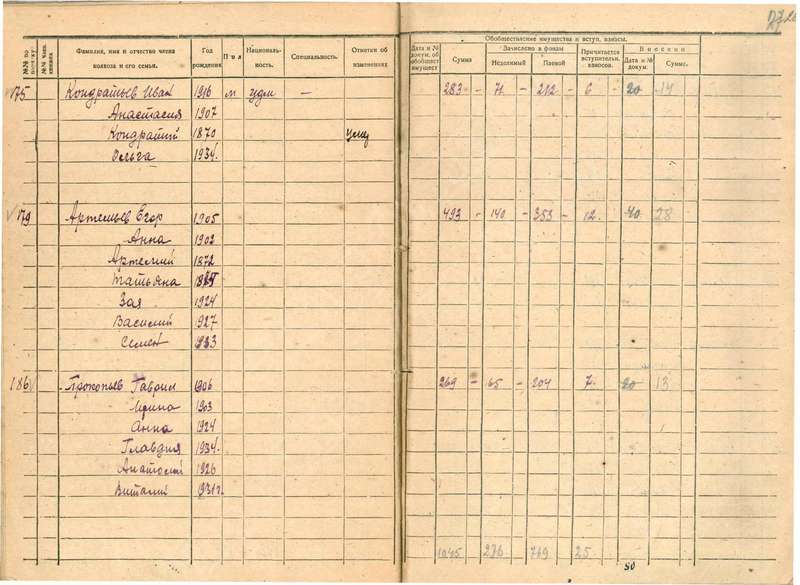 №№ по порядку
№№ член. книжек
Фамилия, имя и отчество члена колхоза и его семьи.
Год рождения
Пол
Националь-ность.
Специальность.
Отметки об изменениях
Обобществление имущества и вступ. взносы.
Дата и № докум. об обобщест имущест
Сумма
Зачислено в фонды
Неделимый
Паевой
Причитается вступительн. взносов.
Внесено
Дата и № докум.
Сумме.
175 Кондратьев Иван 1916 м удм — 283 - 71 - 212 - 6 20 14
Анастасия 1907
Кондратий 1870
Ольга 1934.
179 Артемьев Егор 1905 493 - 140 - 353 - 12. 40 28
Анна 1902
Артемий 1872
Татьяна
Зая 1924
Василий 1927
Семен 1933
186 Прокопьев Гаврил 1906 269 - 65 - 204 7. 20 13
Ирина 1903
Анна 1924
Главдия 1934.
Анатолий 1926
Виталий 1931г.
1045 276 769 25
50